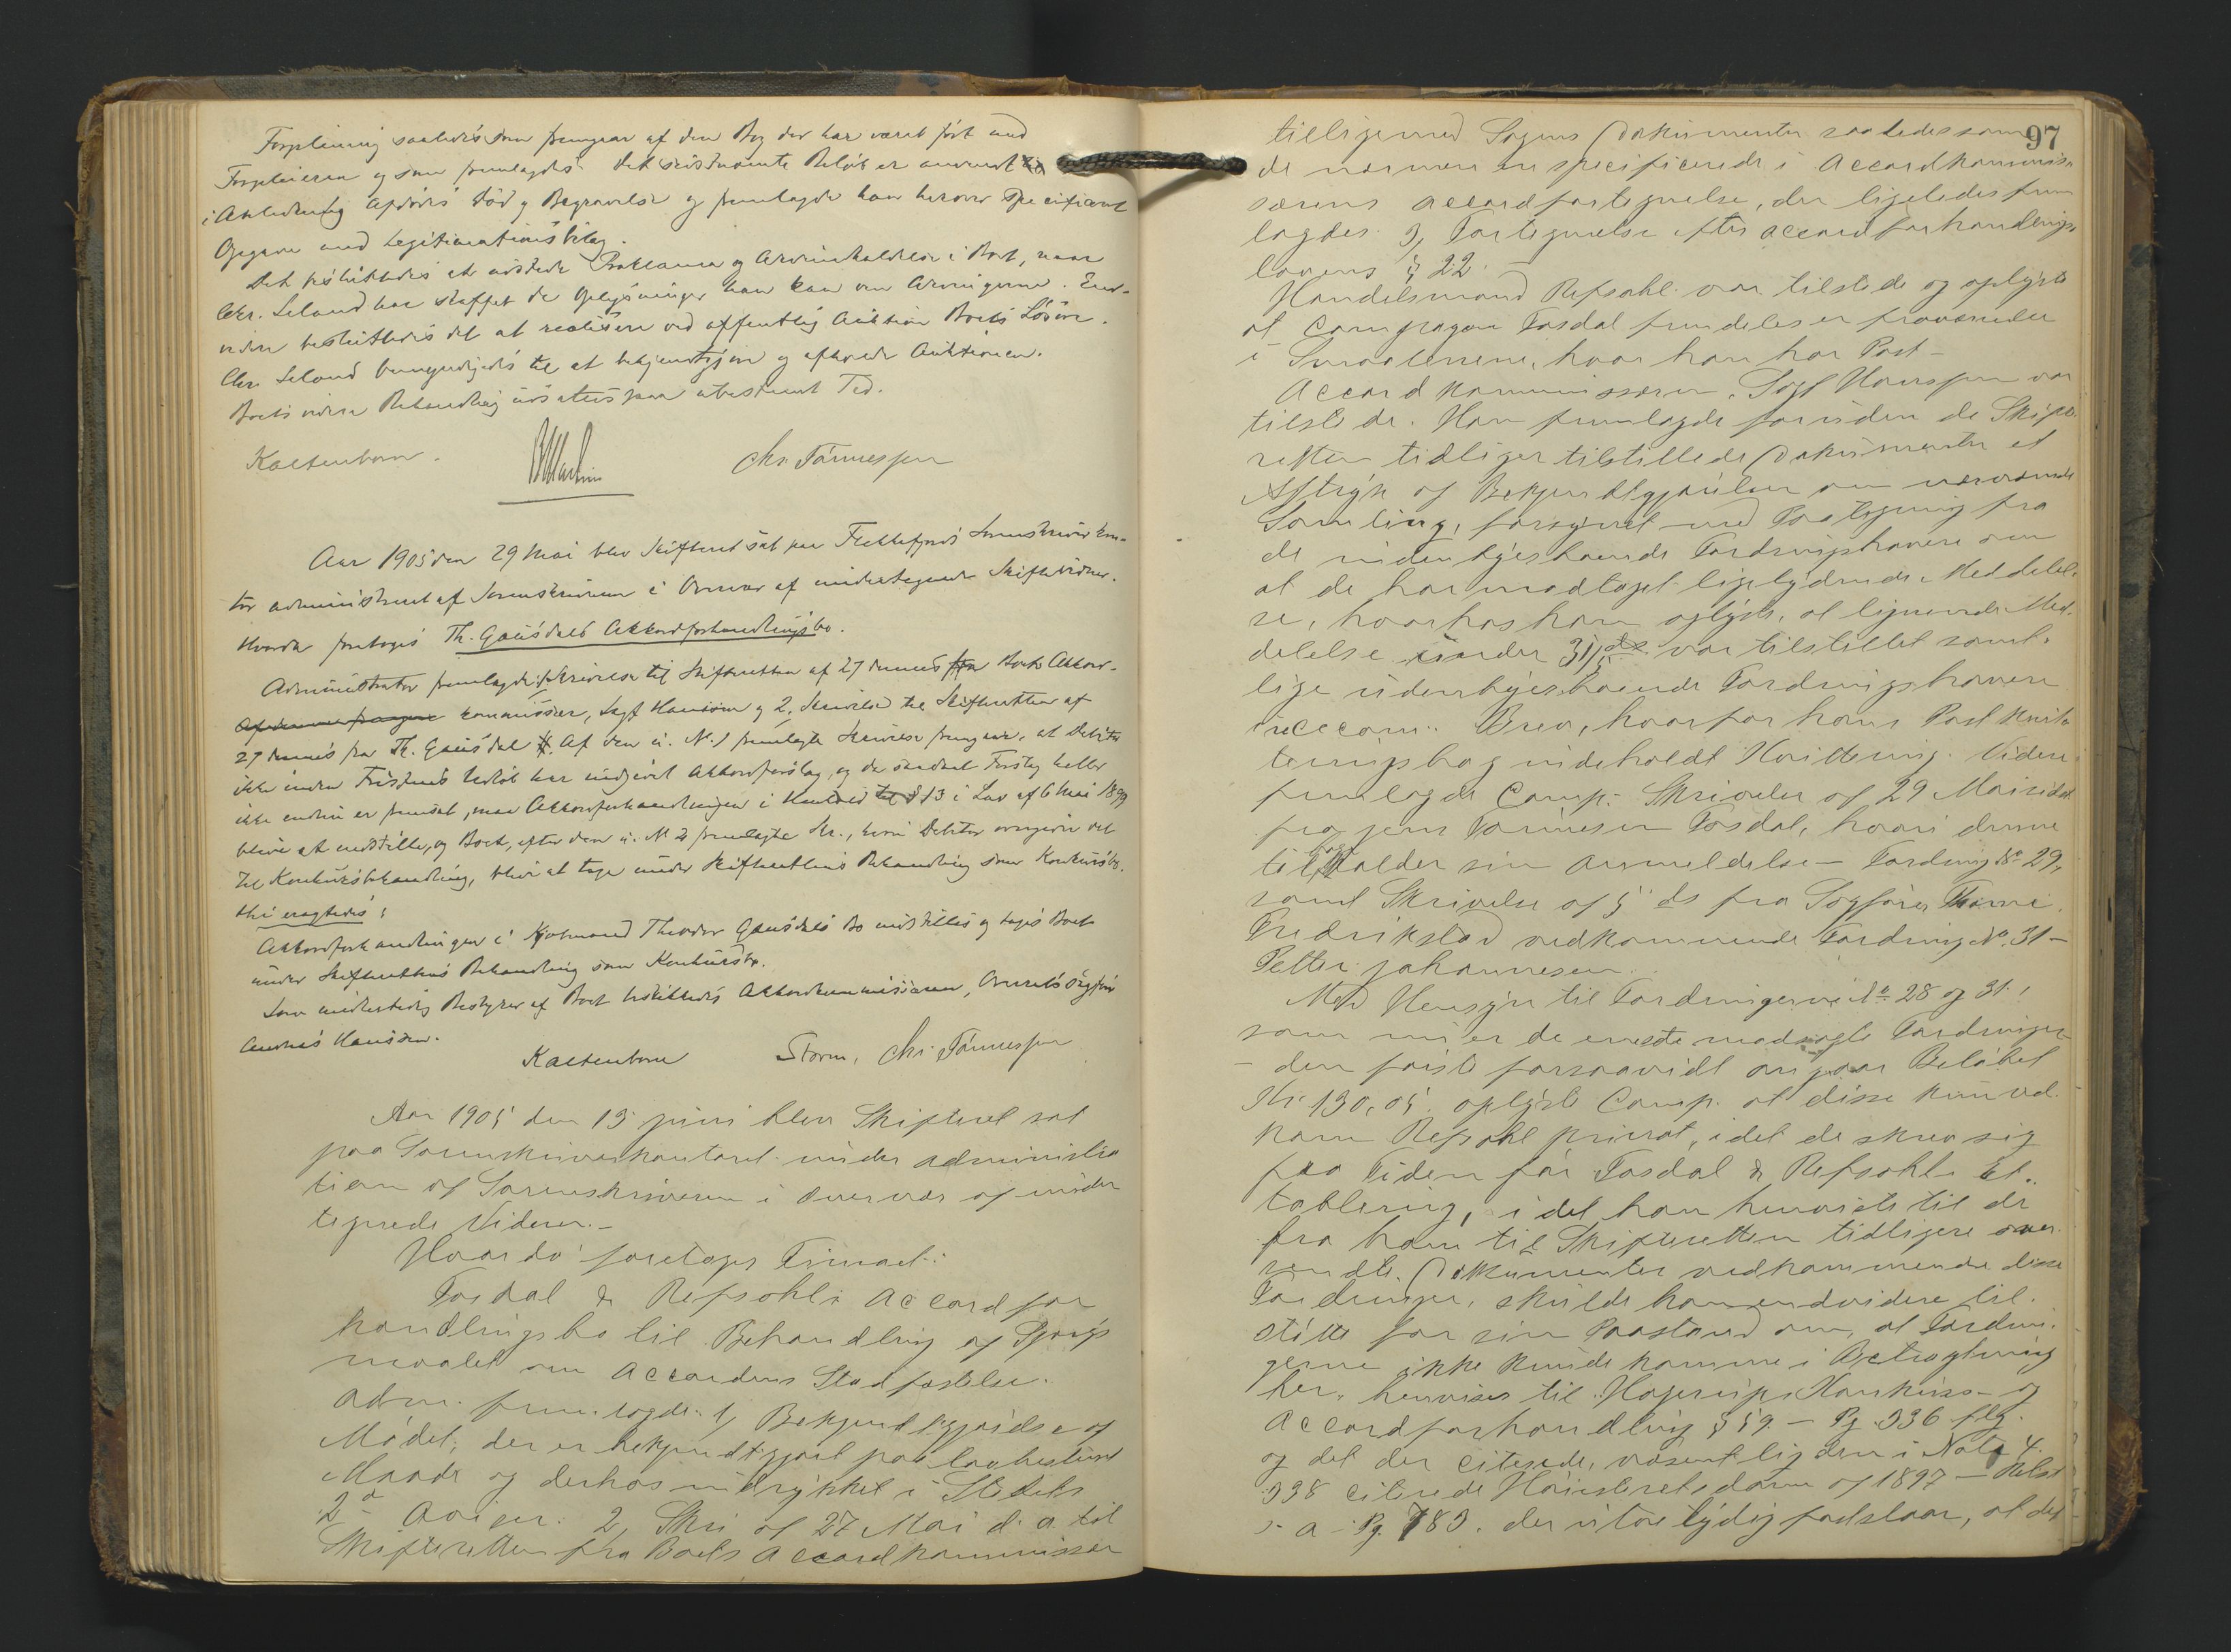 Forpleining saaledes som fremgaar af den Bog der har været ført med
Forpleieren og som fremlagdes. Det sidstnævnte Beløb er anvendt
i Anledning Afdødes Død og Begravelse og fremlagde han herover specificeret
Opgave med Legitimationsbilag.
Det besluttedes at udstede Proklama og Arveindkaldelse i Boet, naar
Chr. Seland har skaffet de Oplysninger han kan om Arvingerne. End-
videre besluttedes det at realisere ved offentlig Auktion Boets Løsøre.
Chr. Seland bemyndigedes til at bekjendtgjøre og afholde Auktionen.
Boets videre Behandling udsattes paa ubestemt Tid.
Kaltenborn. Chr. Tønnessen
Aar 1905 den 29 Mai blev Skifteret sat paa Flekkefjords Sorenskriverkon-
tor administreret af Sorenskriveren i Overvær af undertegnede Skiftevidner.
Hvorda foretoges Th. Gausdals Akkordforhandlingsbo.
Administrator fremlagde: 1. Skrivelse til Skifteretten af 27 dennes fra Boets Akkord-
kommissær, Sagf. Hanssen og 2. Skrivelse til Skifteretten af
27 dennes fra Th. Gausdal. Af den u. N. 1 fremlagte Skrivelse fremgaar, at Debitor
ikke inden Fristens Udløb har indgivet Akkordforslag, og da saadant Forslag heller
ikke endnu er fremsat, maa Akkordforhandlingen i Henhold til § 13 i Lov af 6 Mai 1899
blive at indstille, og Boet, efter den u. N 2 fremlagte Skr., hvori Debitor overgiver det
til Konkursbehandling, blive at tage under Skifterettens Behandling som Konkursbo.
Thi eragtedes:
Akkordforhandlingen i Kjøbmand Theodor Gausdals Bo indstilles og tages Boet
under Skifterettens Behandling som Konkursbo.
Som midlertidig Bestyrer af Boet beskikkedes Akkordkommissæren, Overretssagfører
Andreas Hanssen.
Kaltenborn Storm. Chr. Tønnessen
Aar 1905 den 13 juni blev Skifteret sat
paa Sorenskriverkontoret under administra
tion af Sorenskriveren i Overvær af under
tegnede Vidner.-
Hvorda foretages Firmaet:
Tosdal & Refsohl's Accordfor
handlingsbo til Behandling af Spørgs
maalet om Accordens Stadfæstelse.
Adm. fremlagde: 1, Bekjendtgjørelse af
Mødet, der er bekjendtgjort paa lovbestemt
Maade og derhos indrykket i Stedets
2de Aviser. 2, Skr. af 27 Mai d. a. til
Skifteretten fra Boets Accordkommissær
97
tilligemed Sagens Dokumenter saaledes som
de nærmere er specificerede i Accordkommis-
særens accordfortegnelse, der ligeledes frem
lagdes. 3, Fortegnelse efter accordforhandlings
lovens § 22.
Handelsmand Refsohl var tilstede og oplyste
at Compagnon Tosdal fremdeles er fraværende
i Smaalenene, hvor han har Post -
Accordkommissæren, Sagf Hanssen var
tilstede. Han fremlagde foruden de Skifte
retten tidligere tilstillede Dokumenter et
Aftryk af Bekjendtgjørelsen om nærværende
Samling, forsynet med Paategning fra
de indenbyesboende Fordringshavere om
at de har modtaget ligelydende Meddelel-
se, hvorhos han oplyste, at lignende Med-
delelse under 31/5 var tilstillet samt-
lige udenbyesboende Fordringshavere
i recom. Brev, hvorfor hans Post kvit-
teringsbog indeholdt Kvittering. Videre
fremlagde Comp. Skrivelse af 29 Mai sidst
fra jens Tønnesen Tosdal, hvori denne
tilbagekalder sin anmeldelse - Fordring No 29,
samt Skrivelse af 5 ds fra Sagfører Thorne.
Fredrikstad vedkommende Fordring No 31 -
Petter johannesen.
Med Hensyn til Fordringerne No 28 og 31.,
som nu er de eneste modsagte Fordringer
- den første forsaavidt angaar Beløbet
Kr. 130,05. oplyste Comp. at disse kun ved-
kom Refsohl privat, idet de skrev sig
fra Tiden før Tosdal & Refsohls Et-
tablering, i det han henviste til de
fra ham til Skifteretten tidligere over-
sendte Dokumenter vedkommende disse
Fordringer, skulde han endvidere til
støtte for sin Paastand om, at Fordrin-
gerne ikke kunde komme i Betragtning
her, henvises til Hagerups Konkurs- og
Accordforhandling § 59. - Pg. 336 flg.
og det der citerede, væsentlig den i Note 4.
338 citerede Høiesteretsdom af 1897 -
s. a - Pg. 783. der utvetydig fastslaar, at det